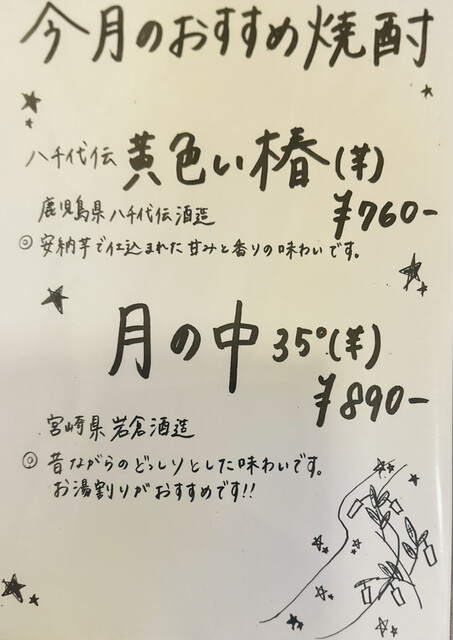 今月のおすすめ焼酎
八千代伝 黄色い椿(芋)
鹿児島県 八千代伝酒造 ¥760-
◎ 安納芋で仕込まれた甘みと香りの味わいです。
月の中 35°(芋)
¥890-
宮崎県 岩倉酒造
◎ 昔ながらのどっしりとした味わいです。
お湯割りがおすすめです!!